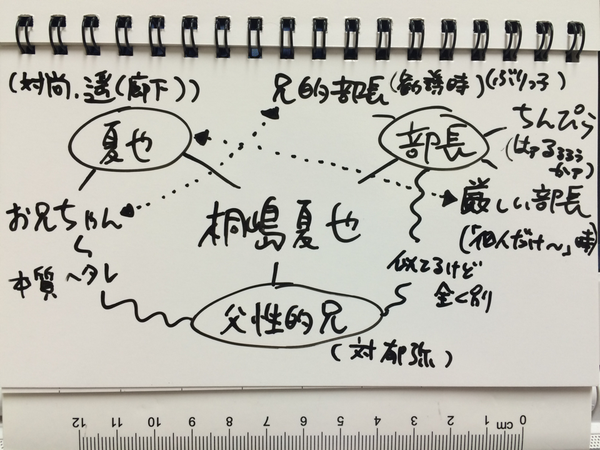 (対尚、遥(廊下))
兄的部長(勧誘時)(ぶりっ子)
夏也
部長
ちんぴら
(はァるぅぅぅかァ)
お兄ちゃん
桐嶋夏也
厳しい部長
(「個人だけ〜」時)
本質ヘタレ
似てるけど
全く別
父性的兄
(対郁弥)
12 11 10 9 8 7 6 5 4 3 2 1 cm 0